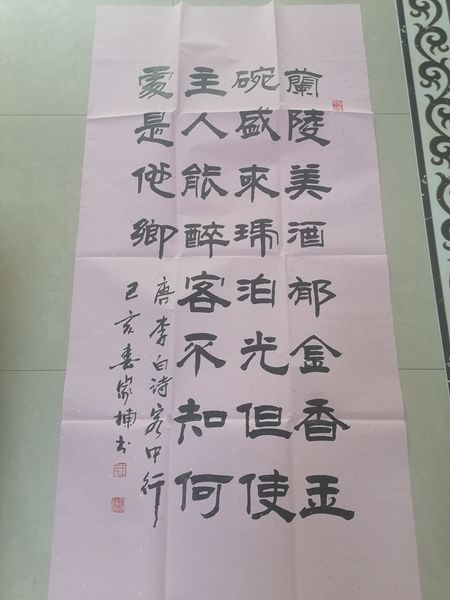 蘭陵美酒郁金香玉
碗盛來琥泊光但使
主人能醉客不知何
處是他鄉
唐李白诗客中行
己亥春家楠书